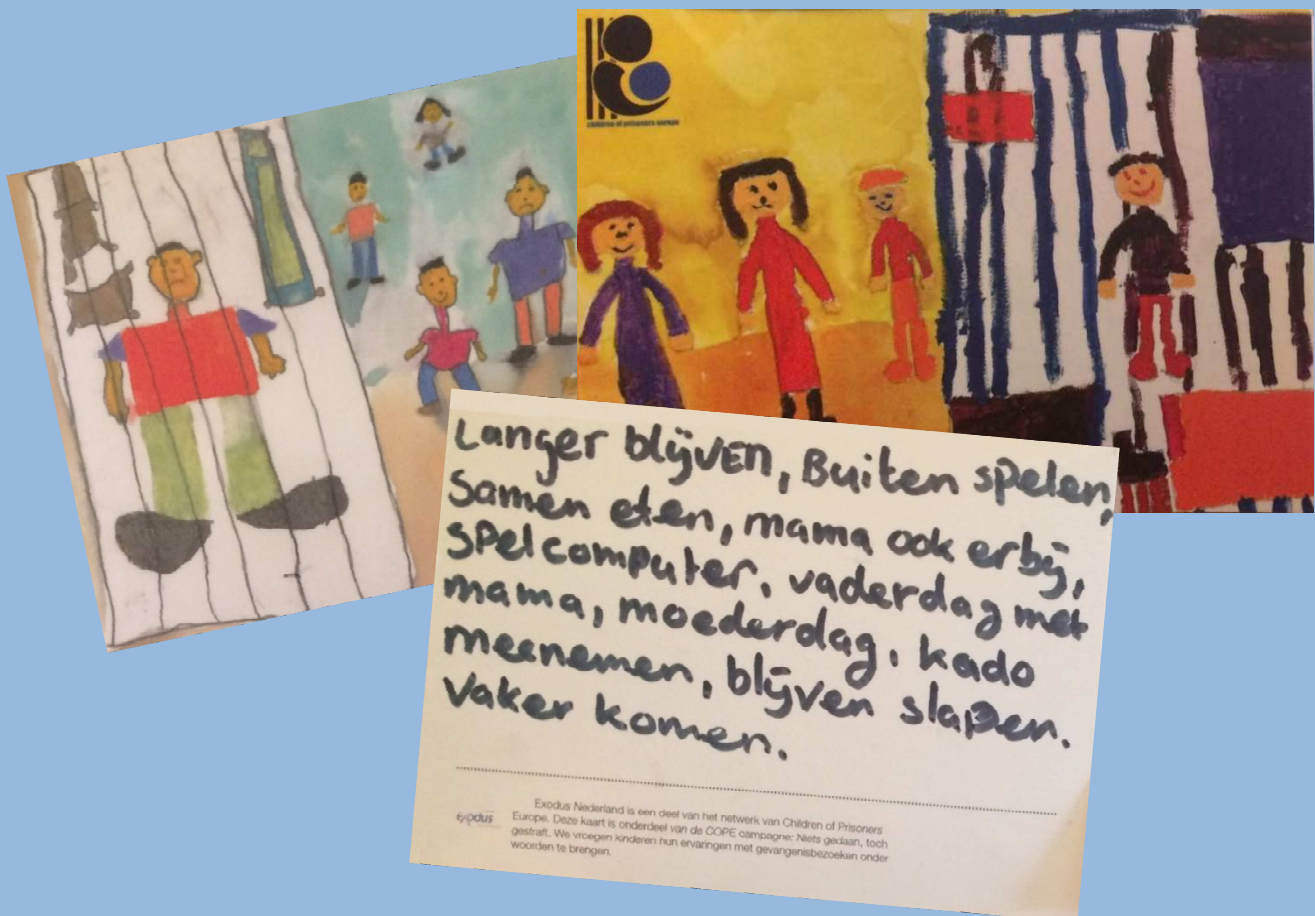 children of prisoners europe
Langer blijven, Buiten spelen,
Samen eten, mama ook erbij,
Spelcomputer, vaderdag met
mama, moederdag, kado
meenemen, blijven slapen.
Vaker komen.
exodus
Exodus Nederland is een deel van het netwerk van Children of Prisoners
Europe. Deze kaart is onderdeel van de COPE campagne: Niets gedaan, toch
gestraft. We vroegen kinderen hun ervaringen met gevangenisbezoeken onder
woorden te brengen.